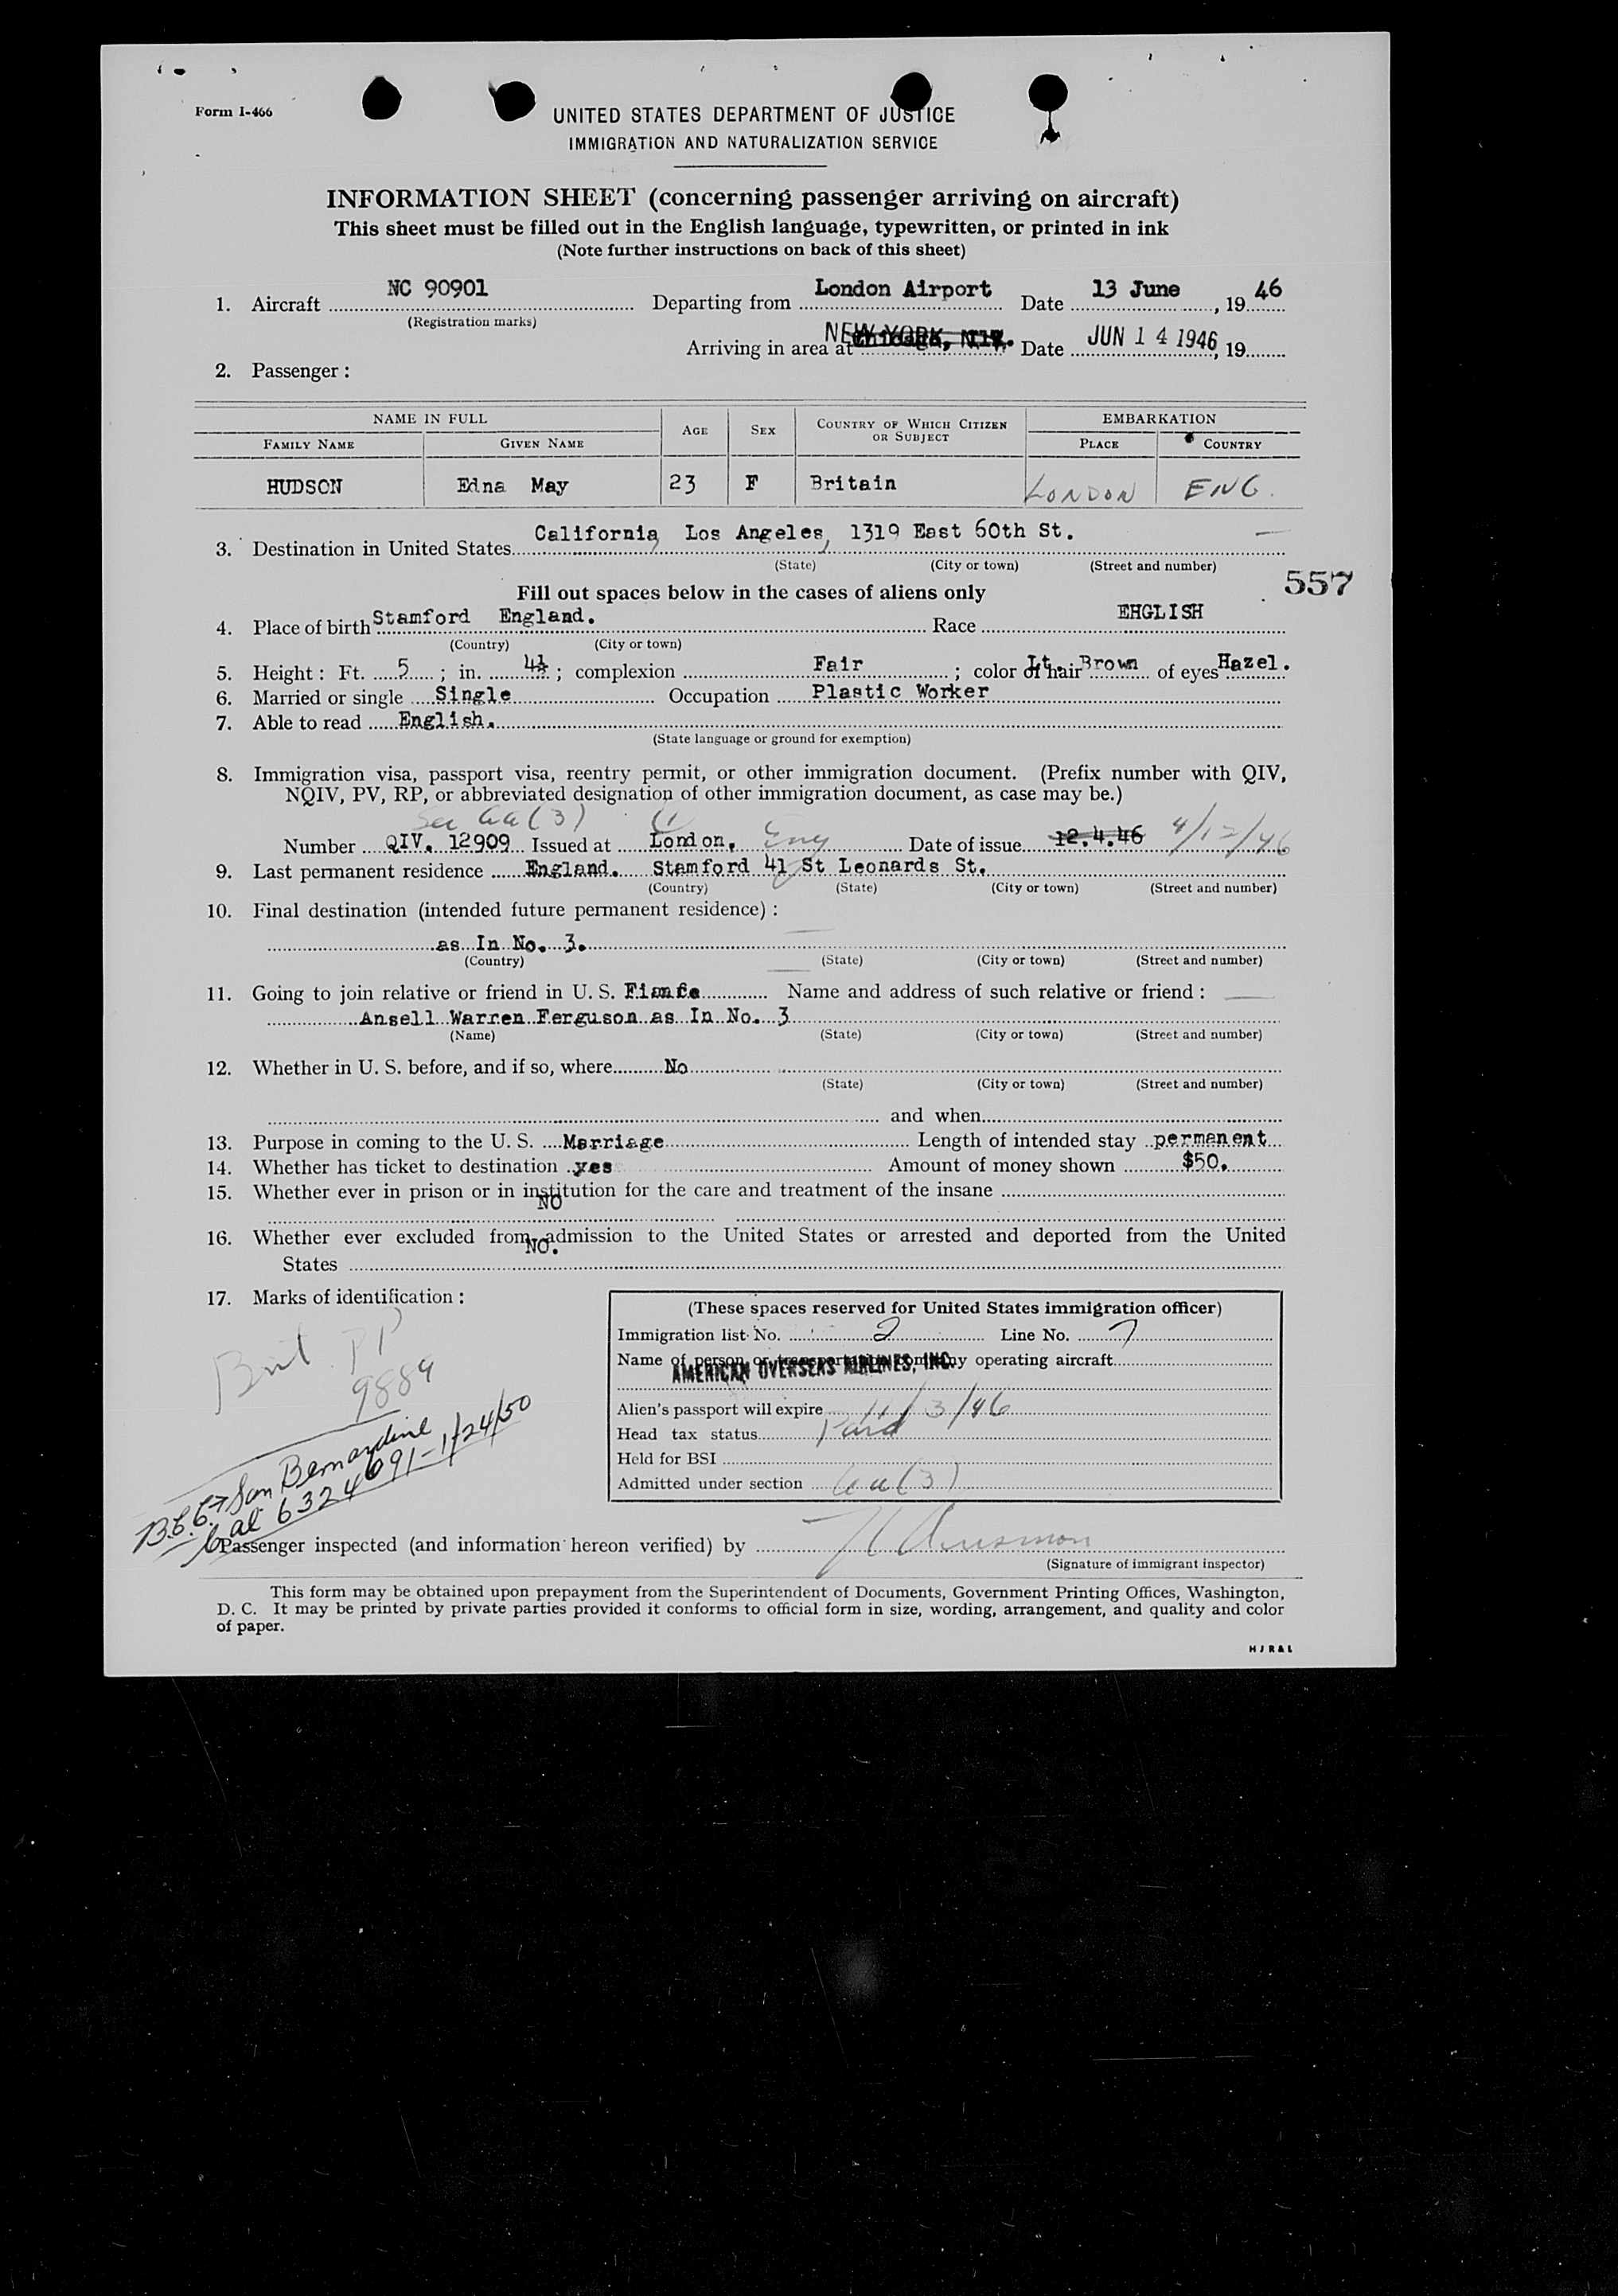 Form I-466
UNITED STATES DEPARTMENT OF JUSTICE
IMMIGRATION AND NATURALIZATION SERVICE
INFORMATION SHEET (concerning passenger arriving on aircraft)
This sheet must be filled out in the English language, typewritten, or printed in ink
(Note further instructions on back of this sheet)
1. Aircraft NC 90901 Departing from London Airport Date 13 June, 19 46
(Registration marks)
Arriving in area at NEW YORK, N.Y. Date JUN 14 1946, 19
2. Passenger:
NAME IN FULL AGE SEX COUNTRY OF WHICH CITIZEN OR SUBJECT EMBARKATION
FAMILY NAME GIVEN NAME PLACE COUNTRY
HUDSON Edna May 23 F Britain LONDON ENG.
3. Destination in United States California, Los Angeles, 1319 East 60th St.
(State) (City or town) (Street and number)
Fill out spaces below in the cases of aliens only
557
4. Place of birth Stamford England. Race EHGLISH
(Country) (City or town)
5. Height: Ft. 5; in. 4½; complexion Fair; color of hair Lt. Brown of eyes Hazel.
6. Married or single Single Occupation Plastic Worker
7. Able to read English.
(State language or ground for exemption)
8. Immigration visa, passport visa, reentry permit, or other immigration document. (Prefix number with QIV,
NQIV, PV, RP, or abbreviated designation of other immigration document, as case may be.)
Sec (3)
Number QIV. 12909 Issued at London, Eng Date of issue 12.4.46 4/12/46
9. Last permanent residence England. Stamford 41 St Leonards St.
(Country) (State) (City or town) (Street and number)
10. Final destination (intended future permanent residence):
as In No. 3.
(Country) (State) (City or town) (Street and number)
11. Going to join relative or friend in U. S. Fiance Name and address of such relative or friend:
Ansell Warren Ferguson as In No. 3
(Name) (State) (City or town) (Street and number)
12. Whether in U. S. before, and if so, where No
(State) (City or town) (Street and number)
and when
13. Purpose in coming to the U. S. Marriage Length of intended stay permanent
14. Whether has ticket to destination yes Amount of money shown $50.
15. Whether ever in prison or in institution for the care and treatment of the insane
NO
16. Whether ever excluded from admission to the United States or arrested and deported from the United
NO.
States
17. Marks of identification:
(These spaces reserved for United States immigration officer)
Immigration list No. 2 Line No. 7
Name of person or transportation company operating aircraft
AMERICAN OVERSEAS AIRLINES, INC.
Brit. PP
9889
Alien's passport will expire 11/3/46
Head tax status Paid
Held for BSI
Admitted under section (3)
San Bernardine
Cal 6324091-1/24/50
Passenger inspected (and information hereon verified) by
(Signature of immigrant inspector)
This form may be obtained upon prepayment from the Superintendent of Documents, Government Printing Offices, Washington,
D. C. It may be printed by private parties provided it conforms to official form in size, wording, arrangement, and quality and color
of paper.
H J R & L